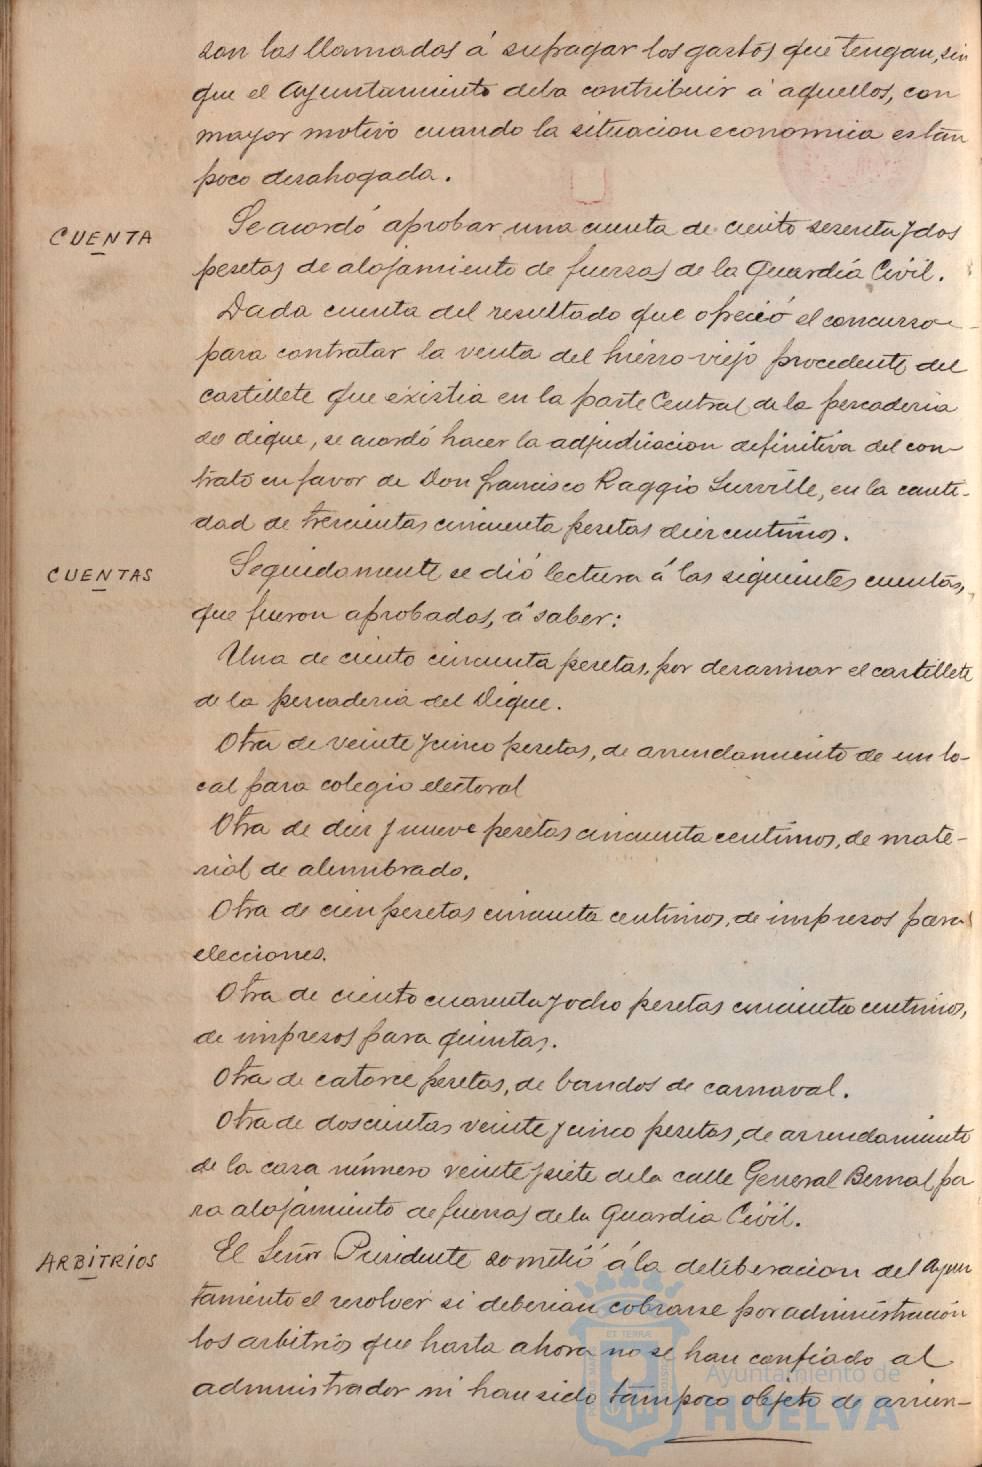 son los llamados á sufragar los gastos que tengan, sin
que el Ayuntamiento deba contribuir á aquellos, con
mayor motivo cuando la situacion economica es tan
poco desahogada.
CUENTA
Se acordó aprobar una cuenta de ciento sesenta y dos
pesetas de alojamiento de fuerzas de la Guardia Civil.
Dada cuenta del resultado que ofreció el concurso
para contratar la venta del hierro viejo procedente del
castillete que existia en la parte Central de la pescaderia
del dique, se acordó hacer la adjudicacion definitiva del con-
trato en favor de Don Francisco Raggio Surville, en la canti-
dad de trescientas cincuenta pesetas diez centimos.
CUENTAS
Seguidamente se dió lectura á las siguientes cuentas,
que fueron aprobadas, á saber:
Una de ciento cincuenta pesetas, por desarmar el castillete
de la pescaderia del Dique.
Otra de veinte y cinco pesetas, de arrendamiento de un lo-
cal para colegio electoral
Otra de diez y nueve pesetas cincuenta centimos, de mate-
rial de alumbrado.
Otra de cien pesetas cincuenta centimos, de impresos para
elecciones.
Otra de ciento cuarenta y ocho pesetas cincuenta centimos,
de impresos para quintas.
Otra de catorce pesetas, de bandos de carnaval.
Otra de doscientas veinte y cinco pesetas, de arrendamiento
de la casa número veinte y siete de la calle General Bernal pa
ra alojamiento de fuerzas de la Guardia Civil.
ARBITRIOS
El Señor Presidente sometió á la deliberacion del Ayun
tamiento el resolver si deberian cobrarse por administración
los arbitrios que hasta ahora no se han confiado al
administrador ni han sido tampoco objeto de arrien-
Ayuntamiento de
HUELVA